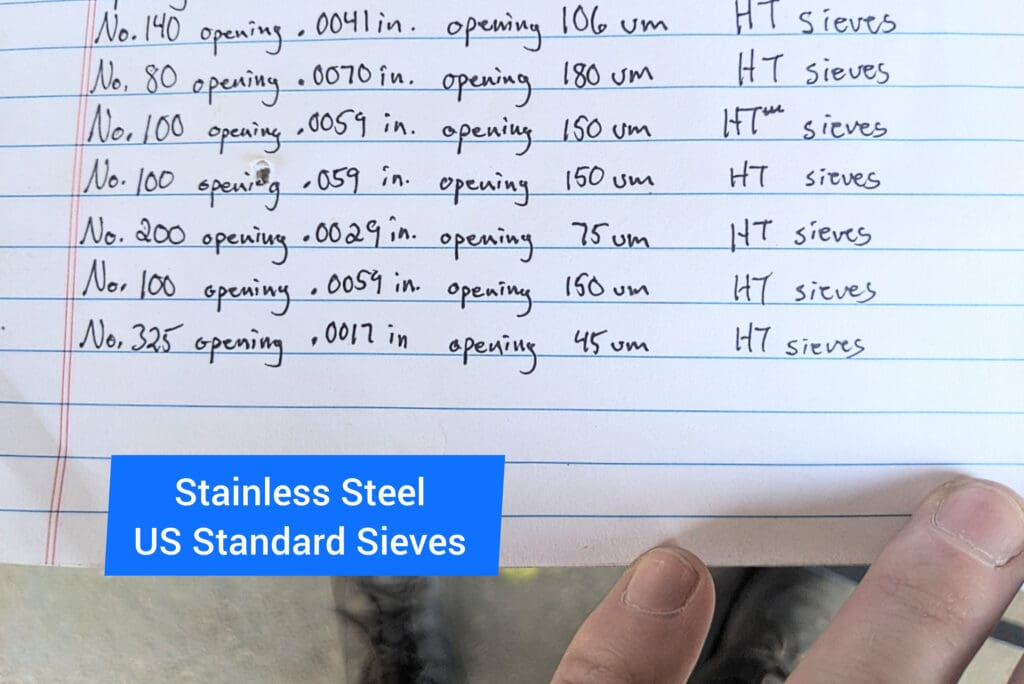 No. 140 opening .0041 in. opening 106 um HT sieves
No. 80 opening .0070 in. opening 180 um HT sieves
No. 100 opening .0059 in. opening 150 um HT sieves
No. 100 opening .059 in. opening 150 um HT sieves
No. 200 opening .0029 in. opening 75 um HT sieves
No. 100 opening .0059 in. opening 150 um HT sieves
No. 325 opening .0017 in opening 45 um HT sieves
Stainless Steel
US Standard Sieves